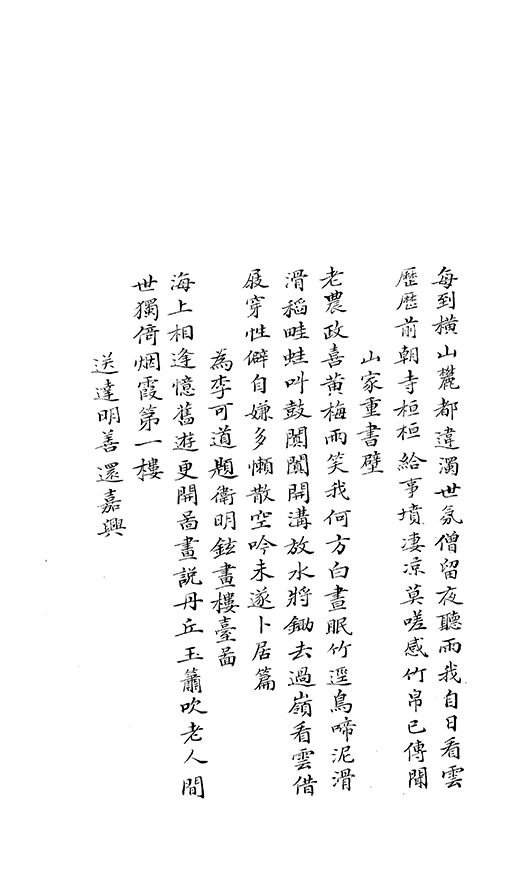 每到横山麓都違濁世氛僧留夜聽雨我自日看雲
歷歷前朝寺桓桓給事墳凄凉莫嗟感竹帛已傳聞
山家重書壁
老農政喜黄梅雨笑我何方白晝眠竹逕鳥啼泥滑
滑稻畦蛙叫鼓闐闐開溝放水將鋤去過嶺看雲借
屐穿性僻自嫌多懶散空吟未遂卜居篇
為李可道題衛明鉉畫樓臺啚
海上相逢憶舊遊更開啚畫説丹丘玉簫吹老人間
世獨倚烟霞第一樓
送達明善還嘉興